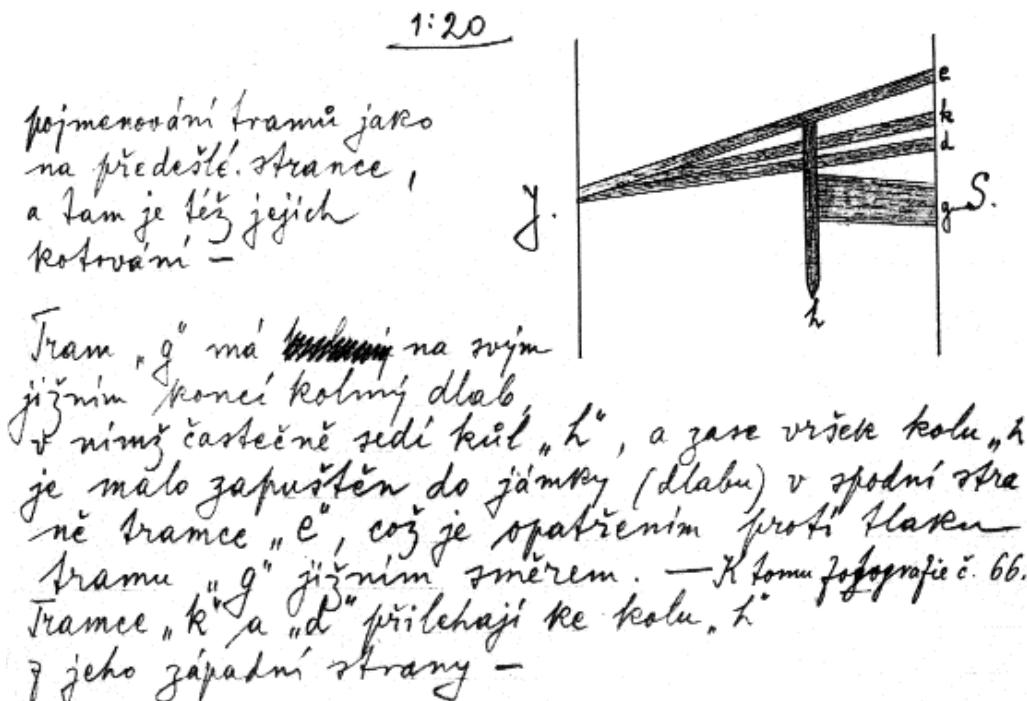 1:20
pojmenování tramů jako
na předešlé stránce,
a tam je též jejich
kotování —
J.
e
k
d
g
S.
h
Tram „g“ má na svým
jižním konci kolmý dlab,
v nimž častečně sedí kůl „h“, a zase vršek kolu „h
je malo zapuštěn do jámky (dlabu) v spodní stra
ně tramce „e“, což je opatřením proti tlaku
tramu „g“ jižním směrem. — K tomu fotografie č. 66.
Tramce „k“ a „d“ přilehají ke kolu „h“
z jeho západní strany —